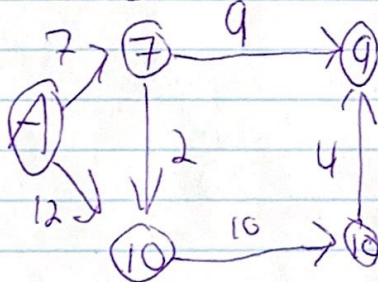 7 7 9 9
A
2 4
12
10 10 10